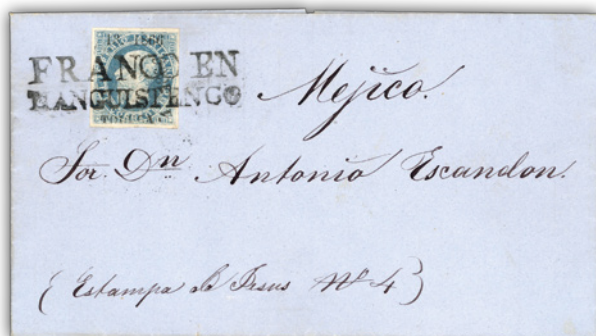 FRANCO EN
TIANGUISTENGO
Mejico.
Sor. Dn Antonio Escandon.
(Estampa de Jesus No 4)